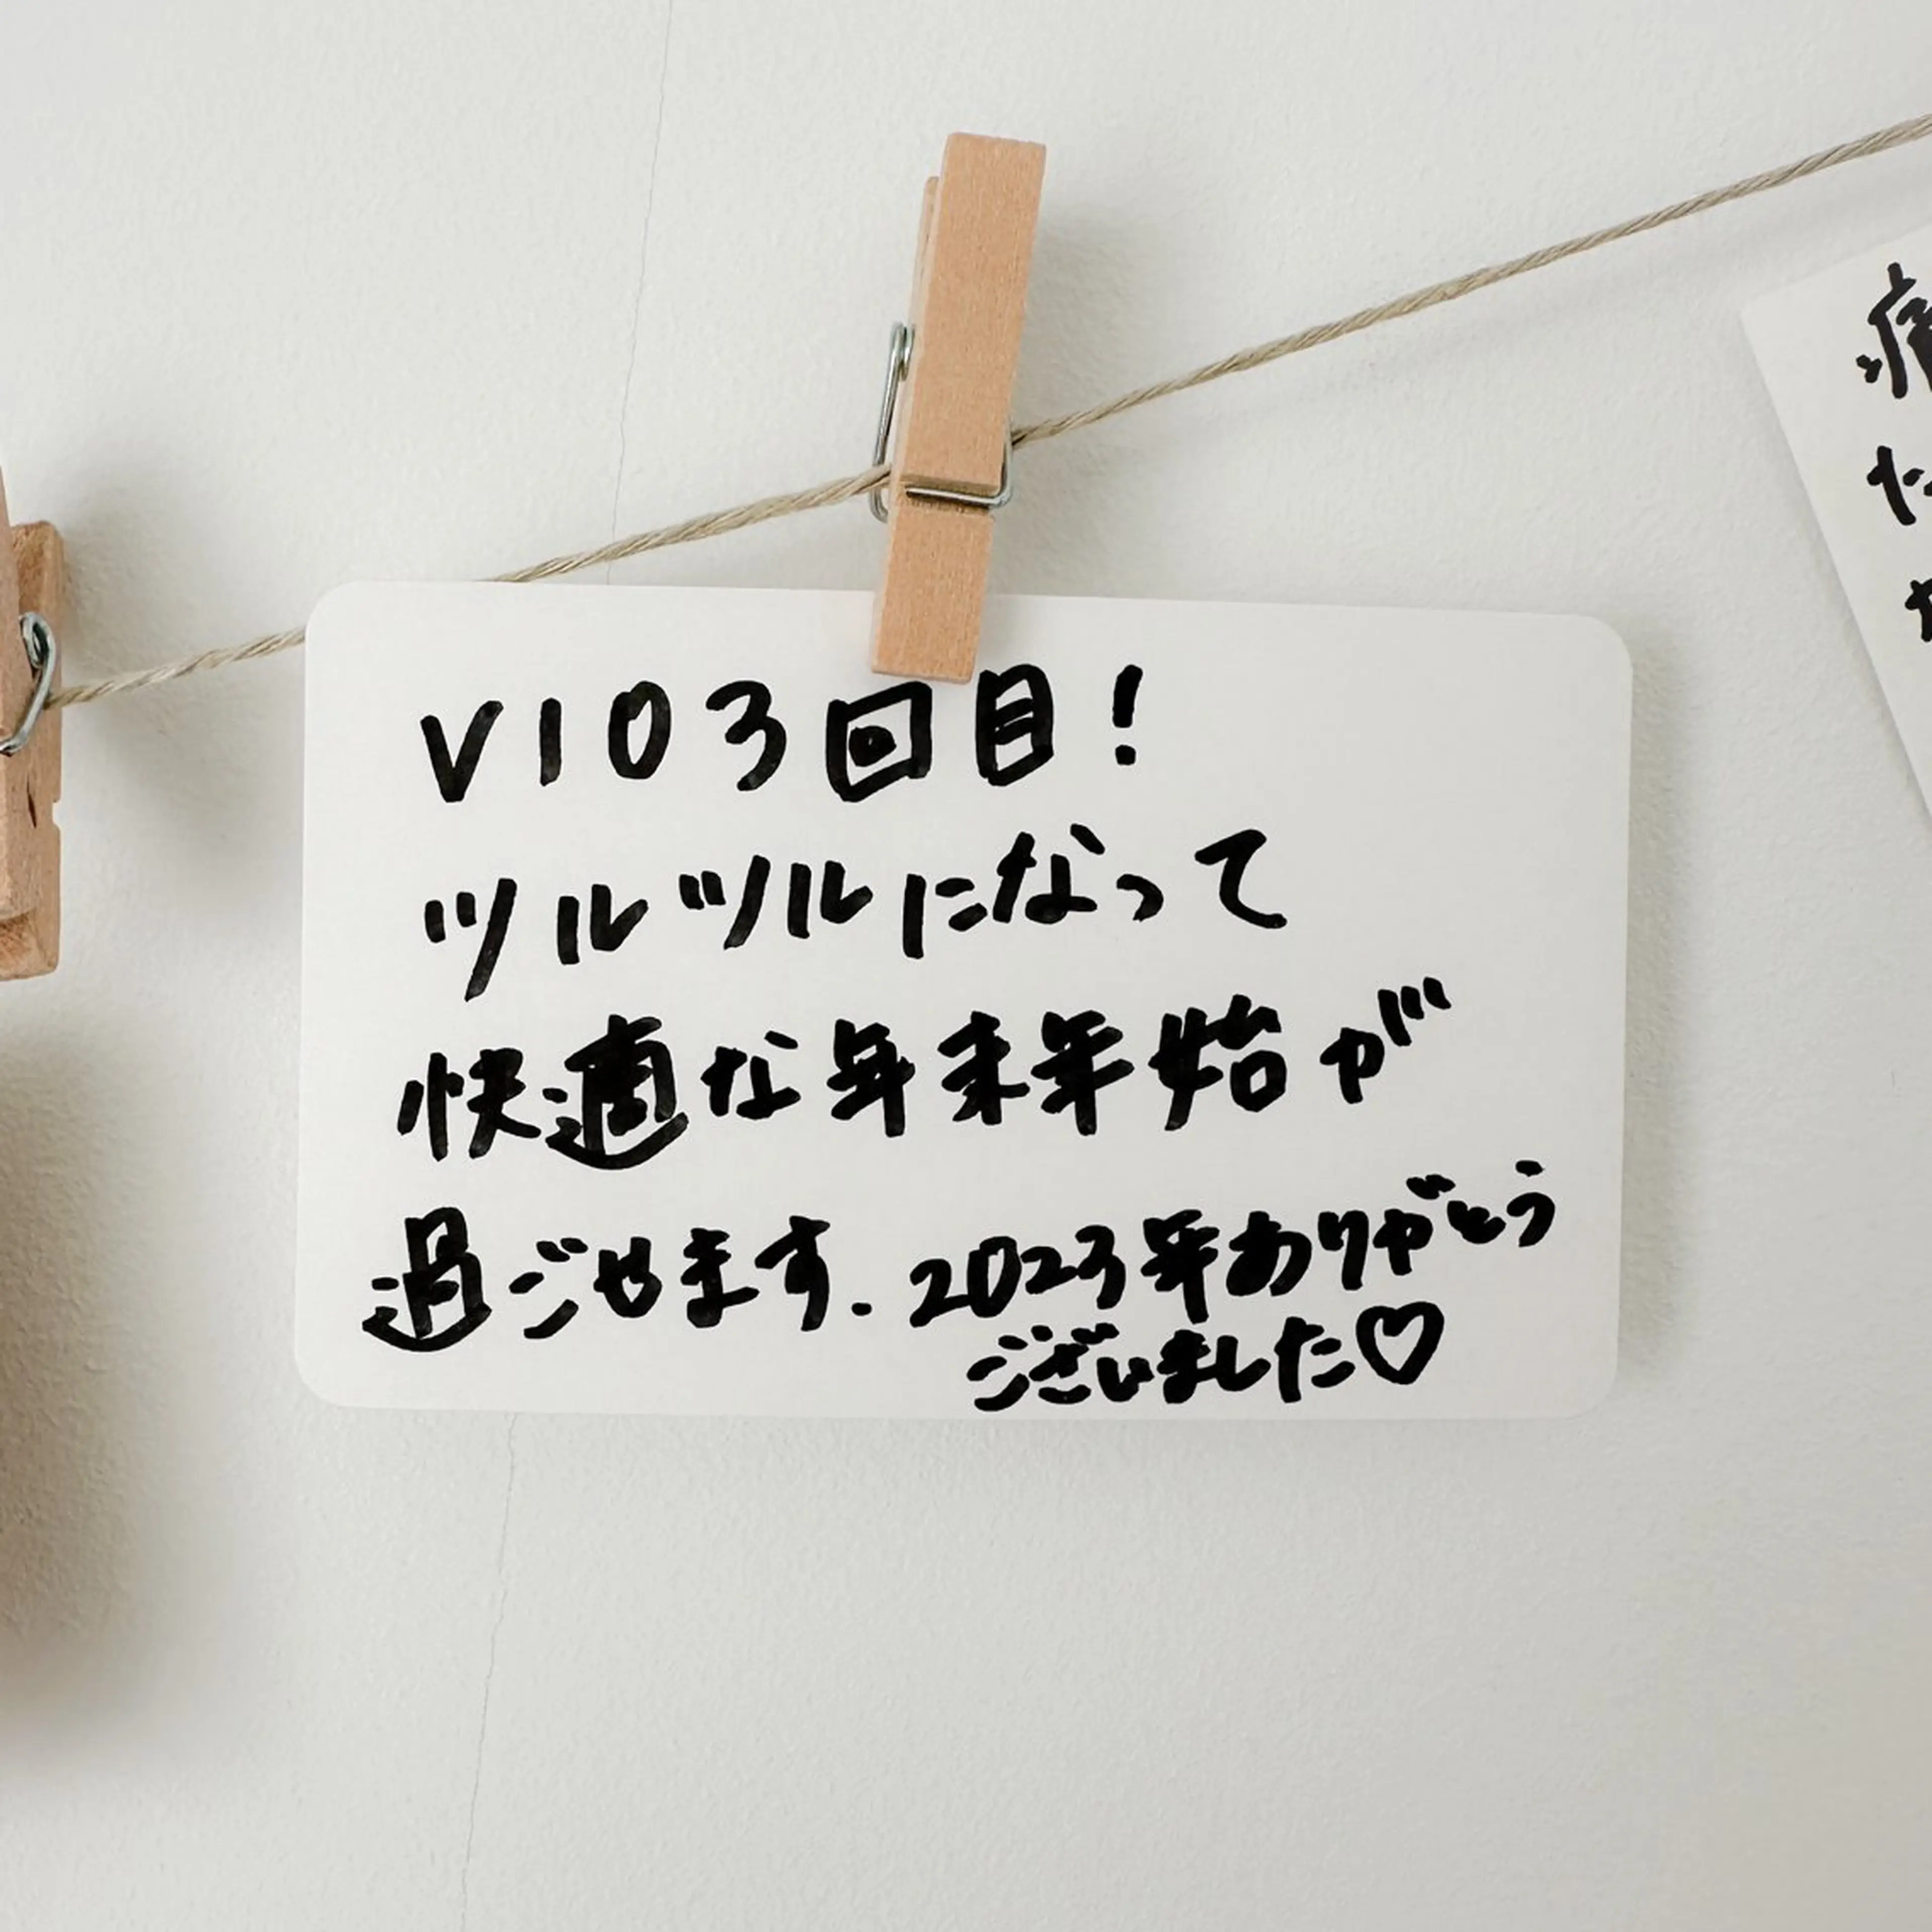 VIO3回目!
ツルツルになって
快適な年末年始が
過ごせます.2023年ありがとう
ございました♡
た